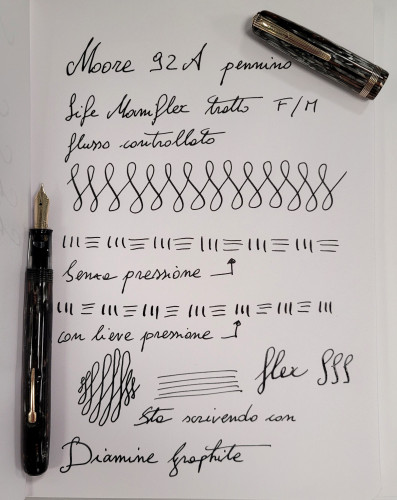 Moore 92A pennino
Life Maniflex tratto F/M
flusso controllato
Senza pressione
con lieve pressione
flex
Sto scrivendo con
Diamine Graphite